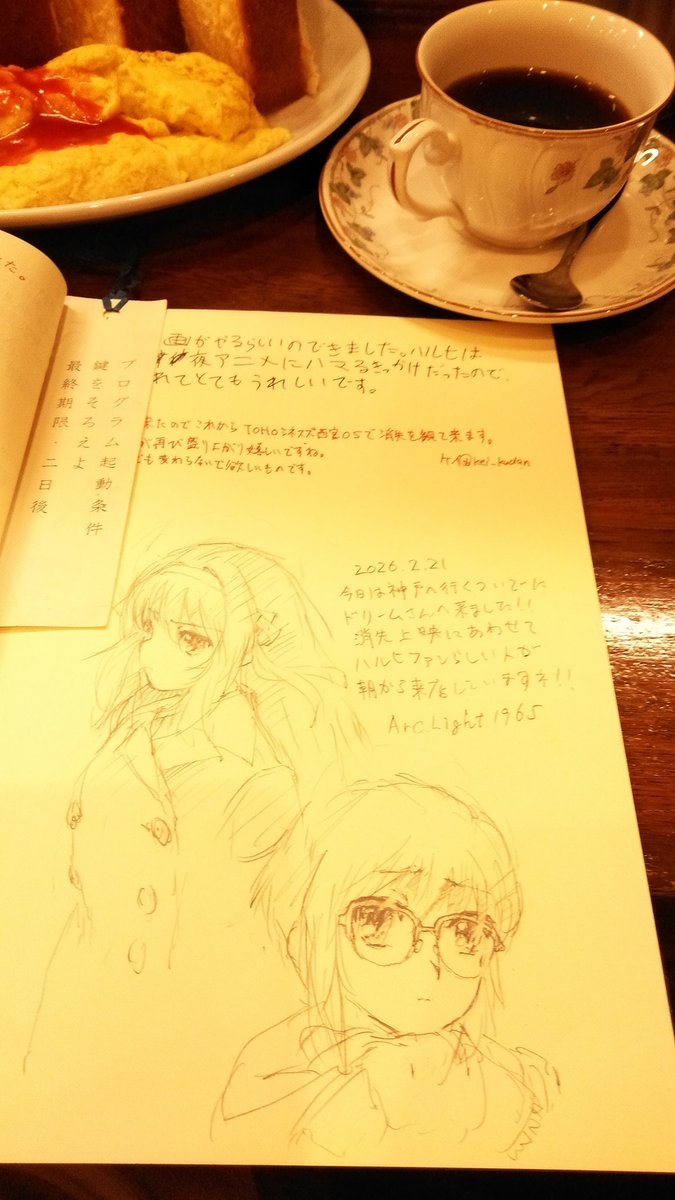 た。
プログラム起動条件
鍵をそろえよ
最終期限・二日後
画がやるらしいのできました。ハルヒは
夜アニメにハマるきっかけだったので、
れてとてもうれしいです。
来たのでこれからTOHOシネマズ西宮OSで消失を観て来ます。
が再び盛り上がり嬉しいですね。
も変わらないで欲しいものです。
ケイ@kei_kudan
2026.2.21
今日は神戸へ行くついでに
ドリームさんへ来ました!!
消失上映にあわせて
ハルヒファンらしい人が
朝から来店していますネ!!
Arc.Light 1965